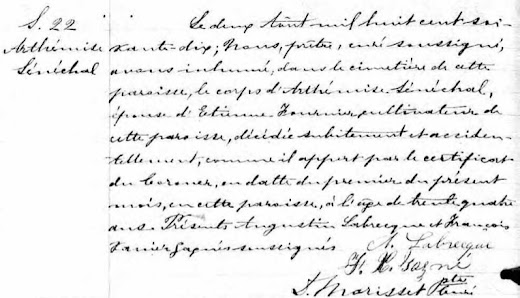 S. 22
Arthémise
Sénéchal
Le deux Août mil huit cent soi-
xante-dix; Nous, prêtre, curé soussigné,
avons inhumé, dans le cimetière de cette
paroisse, le corps d'Arthémise Sénéchal,
épouse d'Etienne Fournier, cultivateur de
cette paroisse, décédée subitement et acciden-
tellement, comme il appert par le certificat
du Coroner, en datte du premier du présent
mois, en cette paroisse, à l'âge de trente quatre
ans. Présents Augustin Labrecque et François
Xavier Gagné soussignés
A. Labrecque
F. X. Gagné
L. Morisset ptre
curé